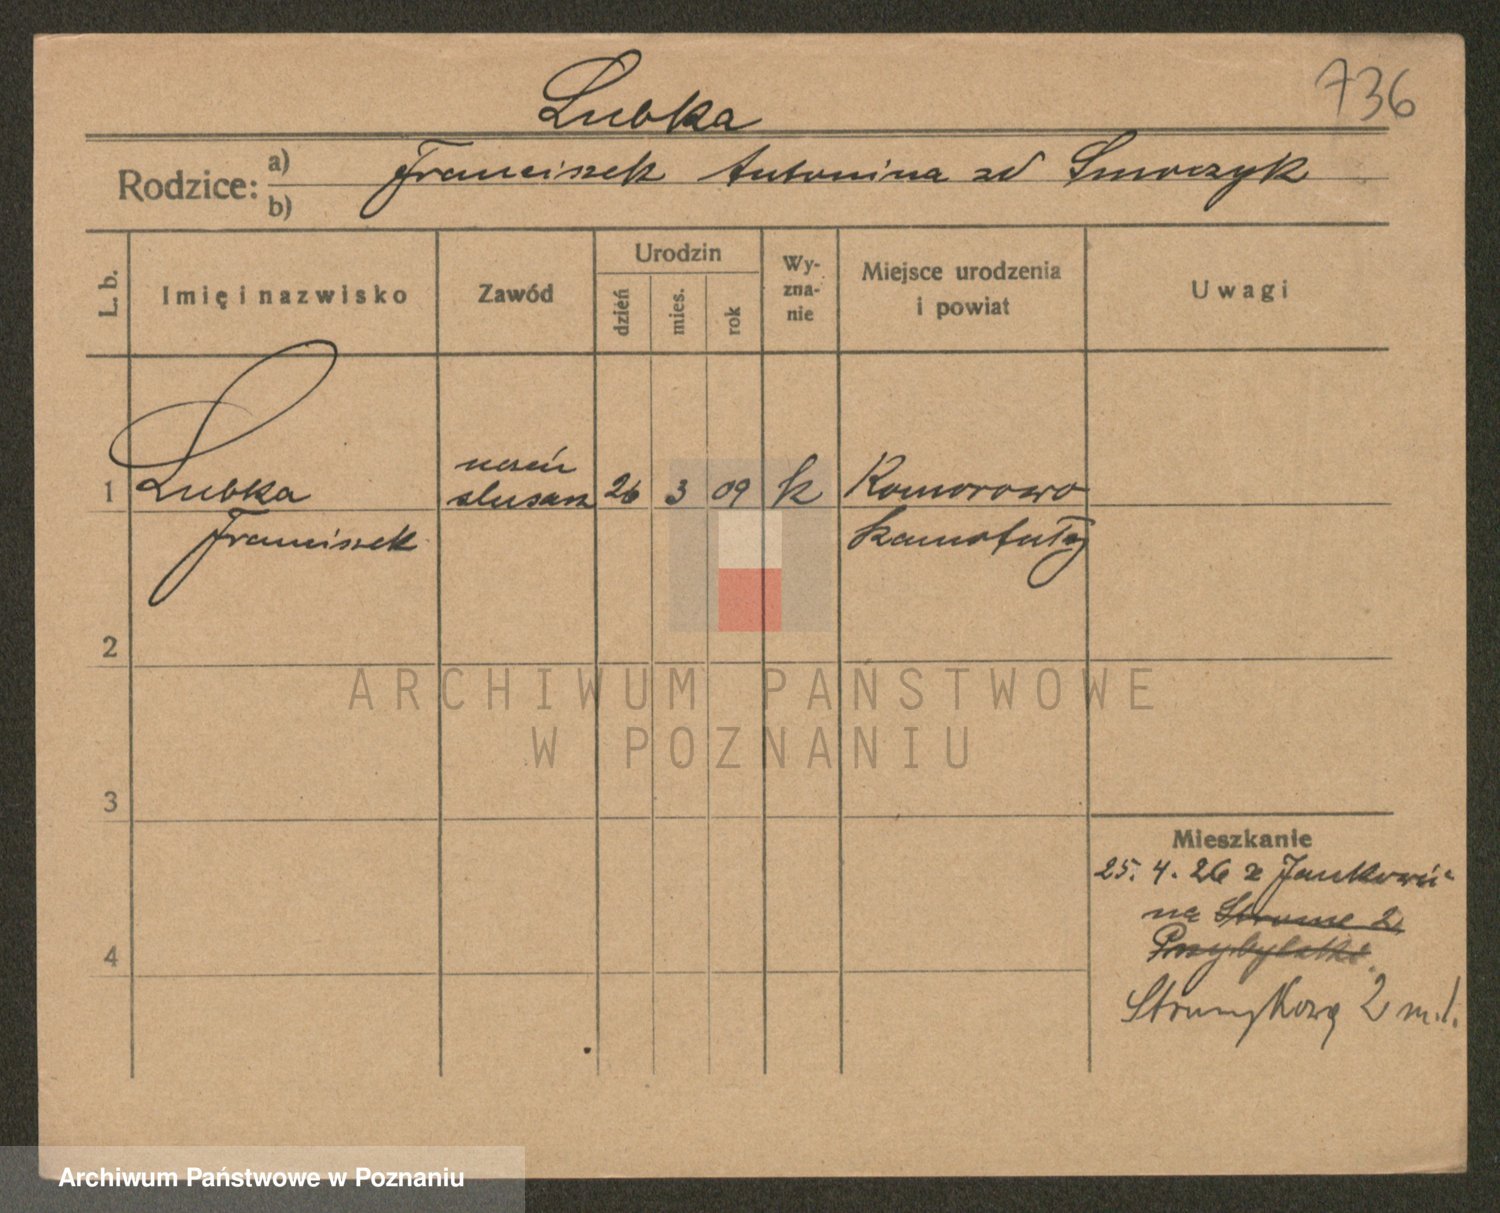 736
Lubka
Rodzice: a) b)
Franciszek Antonina zd Smoczyk
L. b.
Imię i nazwisko
Zawód
Urodzin
dzień
mies.
rok
Wy-
zna-
nie
Miejsce urodzenia
i powiat
Uwagi
1
Lubka
Franciszek
uczeń
slusarz
26
3
09
k
Komorowo
Szamotuły
2
3
4
Mieszkanie
25. 4. 26 z Jankowic
na Strome 2
Przybylski
Strumykową 2 m.1.
ARCHIWUM PAŃSTWOWE
W POZNANIU
Archiwum Państwowe w Poznaniu